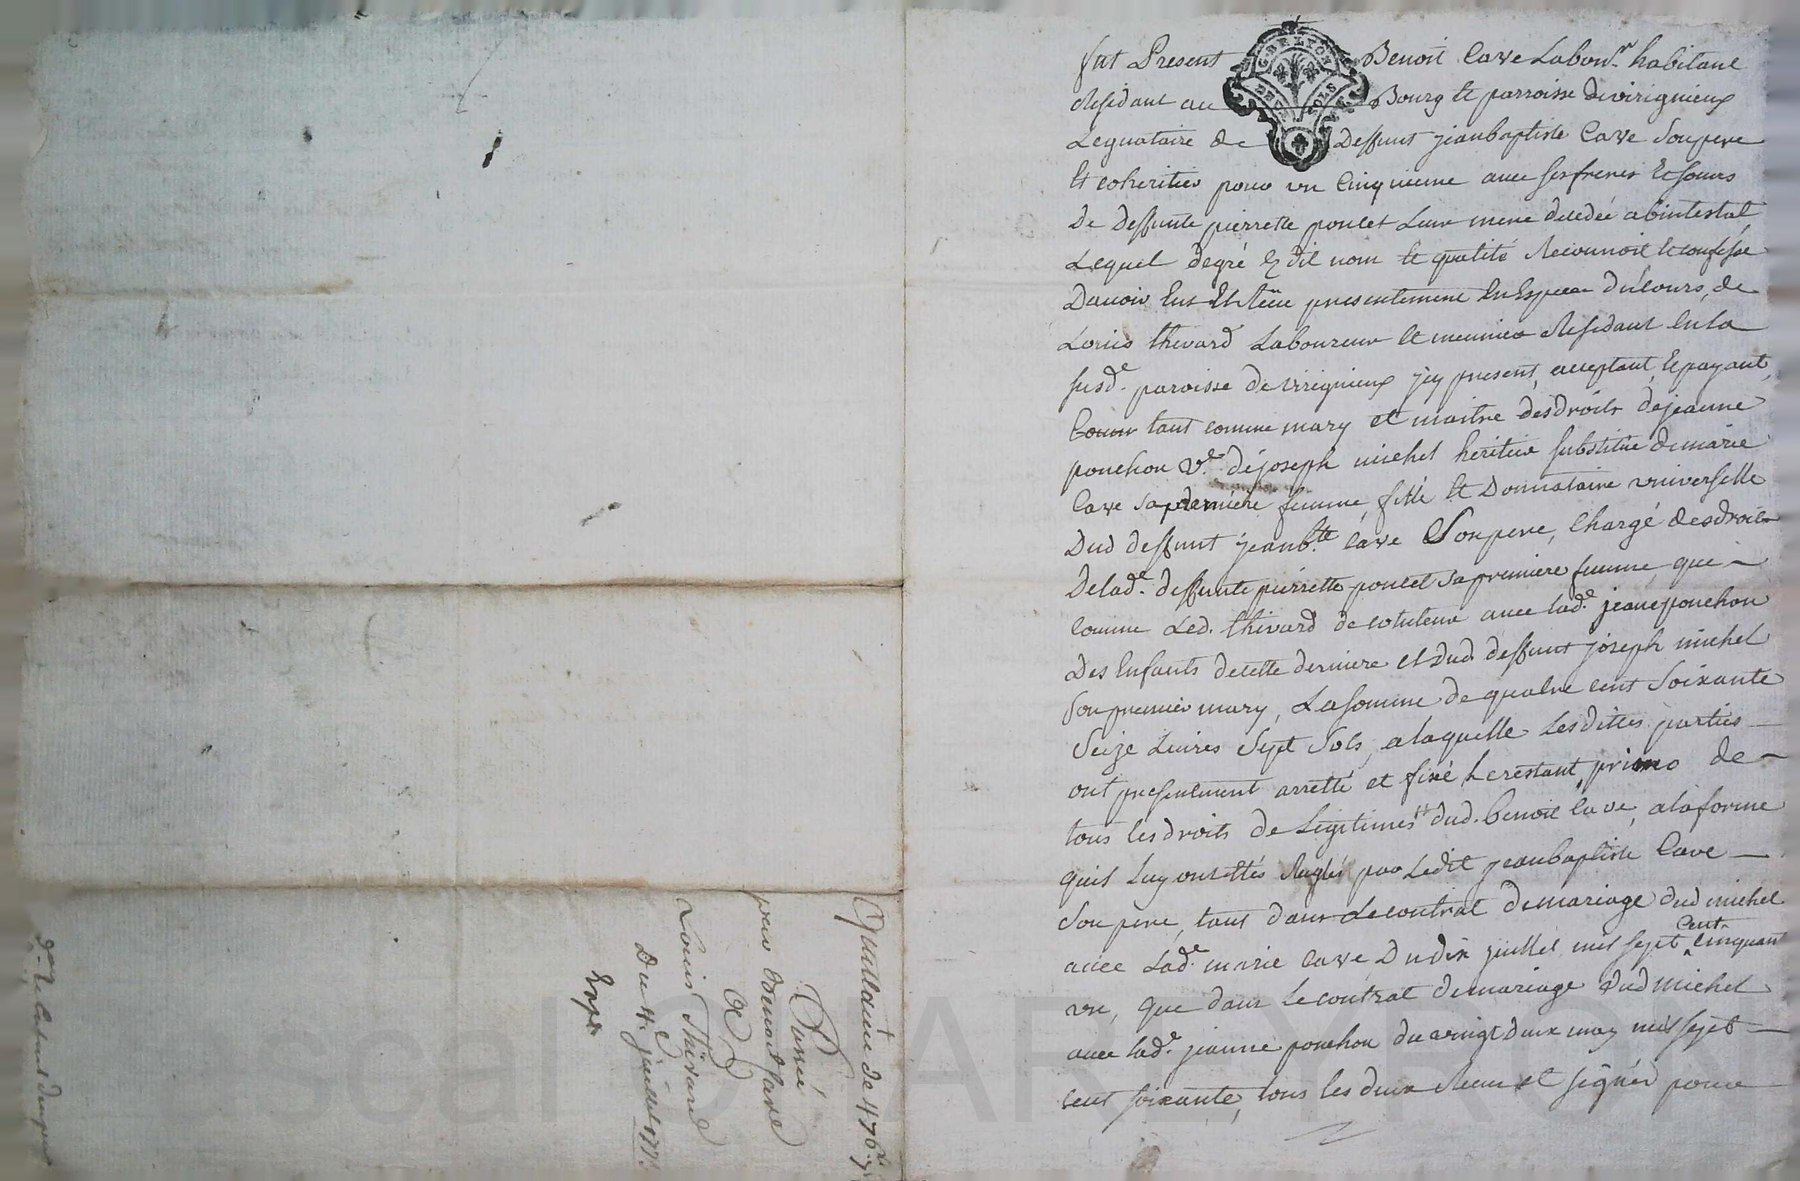 fut Present Benoit Cave Labour.r habitant
Residant au Bourg et parroisse de virignieux
Leguataire de Deffunt jean baptiste Cave Son pere
Et coheritier pour un Cinquieme avec ses freres Et sœurs
De deffunte pierrette poncet Leur mere decedée abintestat
Lequel degré Esdit nom et qualité Reconnoit et confesse
Davoir Eut Et Reçue presentement En Espece du cours, de
Louis thivard Laboureur et meunier Residant En la
susd.e paroisse de virignieux jcy present, acceptant, Et payant,
tant comme mary et maitre des droits de jeanne
ponchon v.e de joseph michel heritier substitué de marie
Cave sa premiere femme, fille et Donnataire universelle
Dud deffunt jean b.tte Cave Son pere, Chargé des droits
De lad.e deffunte pierrette poncet sa premiere femme, que
comme Led. thivard de cotuteur avec lad.e jeane ponchon
Des Enfants de cette derniere et dud deffunt joseph michel
Son premier mary, La somme de quatre cent Soixante
Seize Livres Sept Sols, a laquelle Lesdittes parties
ont presentement arretté et fixé le restant, primo de
tous les droits de Legitimes dud. benoit Cave, a la forme
quil Luy ont ettés Reglés par Ledit jean baptiste Cave
Son pere, tant dans Le contrat de mariage dud michel
avec Lad.e marie Cave Du dix juillet mil sept cent Cinquant
un, que dans le contrat de mariage dud michel
avec lad.e jeanne ponchon du vingt deux may mil sept
cent soixante, tous les deux Reçus et signés par
Quittance de 476.L 7
Passé
par Benoit Cave
A
Louis Thivard
Du 4.e juillet 177
Exp.